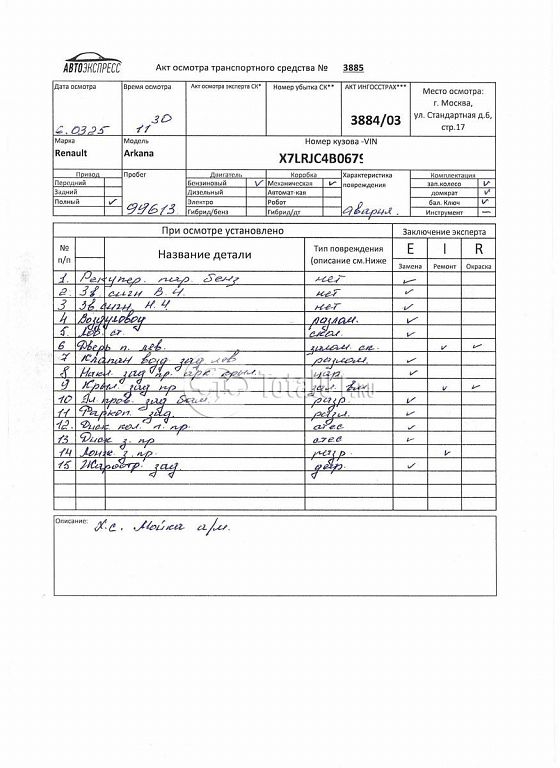 АВТОЭКСПРЕСС
Акт осмотра транспортного средства № 3885
Дата осмотра Время осмотра Акт осмотра эксперта СК* Номер убытка СК** АКТ ИНГОССТРАХ*** Место осмотра:
г. Москва,
6.03.25 11 30 3884/03 ул. Стандартная д.6,
стр.17
Марка Модель Номер кузова -VIN
Renault Arkana X7LRJC4B0679
Привод Пробег Двигатель Коробка Характеристика Комплектация
Передний Бензиновый ✓ Механическая ✓ повреждения зап.колесо ✓
Задний Дизельный Автомат-кая домкрат ✓
Полный ✓ 99613 Электро Робот авария. бал. Ключ ✓
Гибрид/бенз Гибрид/дт Инструмент —
№ При осмотре установлено Заключение эксперта
п/п Название детали Тип повреждения E I R
(описание см.Ниже Замена Ремонт Окраска
1. пар. бенз нет ✓
2. Зв сигн В.Ч. нет ✓
3 Зв сигн. Н.Ч. нет ✓
4 Воздуховод разлом. ✓
5. Лев. ст. скол. ✓
6 Дверь п. лев. залом. ск. ✓ ✓
7 Клапан возд. зад лев разлом. ✓
8 Накл. зад пр. арк. крыл. цар. ✓
9 Крыл. зад пр ✓ ✓
10 Эл пров. зад бам. разр. ✓
11 Фаркоп. зад. разл. ✓
12. Диск кол. п. пр. ✓
13 Диск з. пр ✓
14 Лонж з. пр. разр. ✓
15 зад деф. ✓
Total .RU
Описание: Х.с. Мойка а/м.